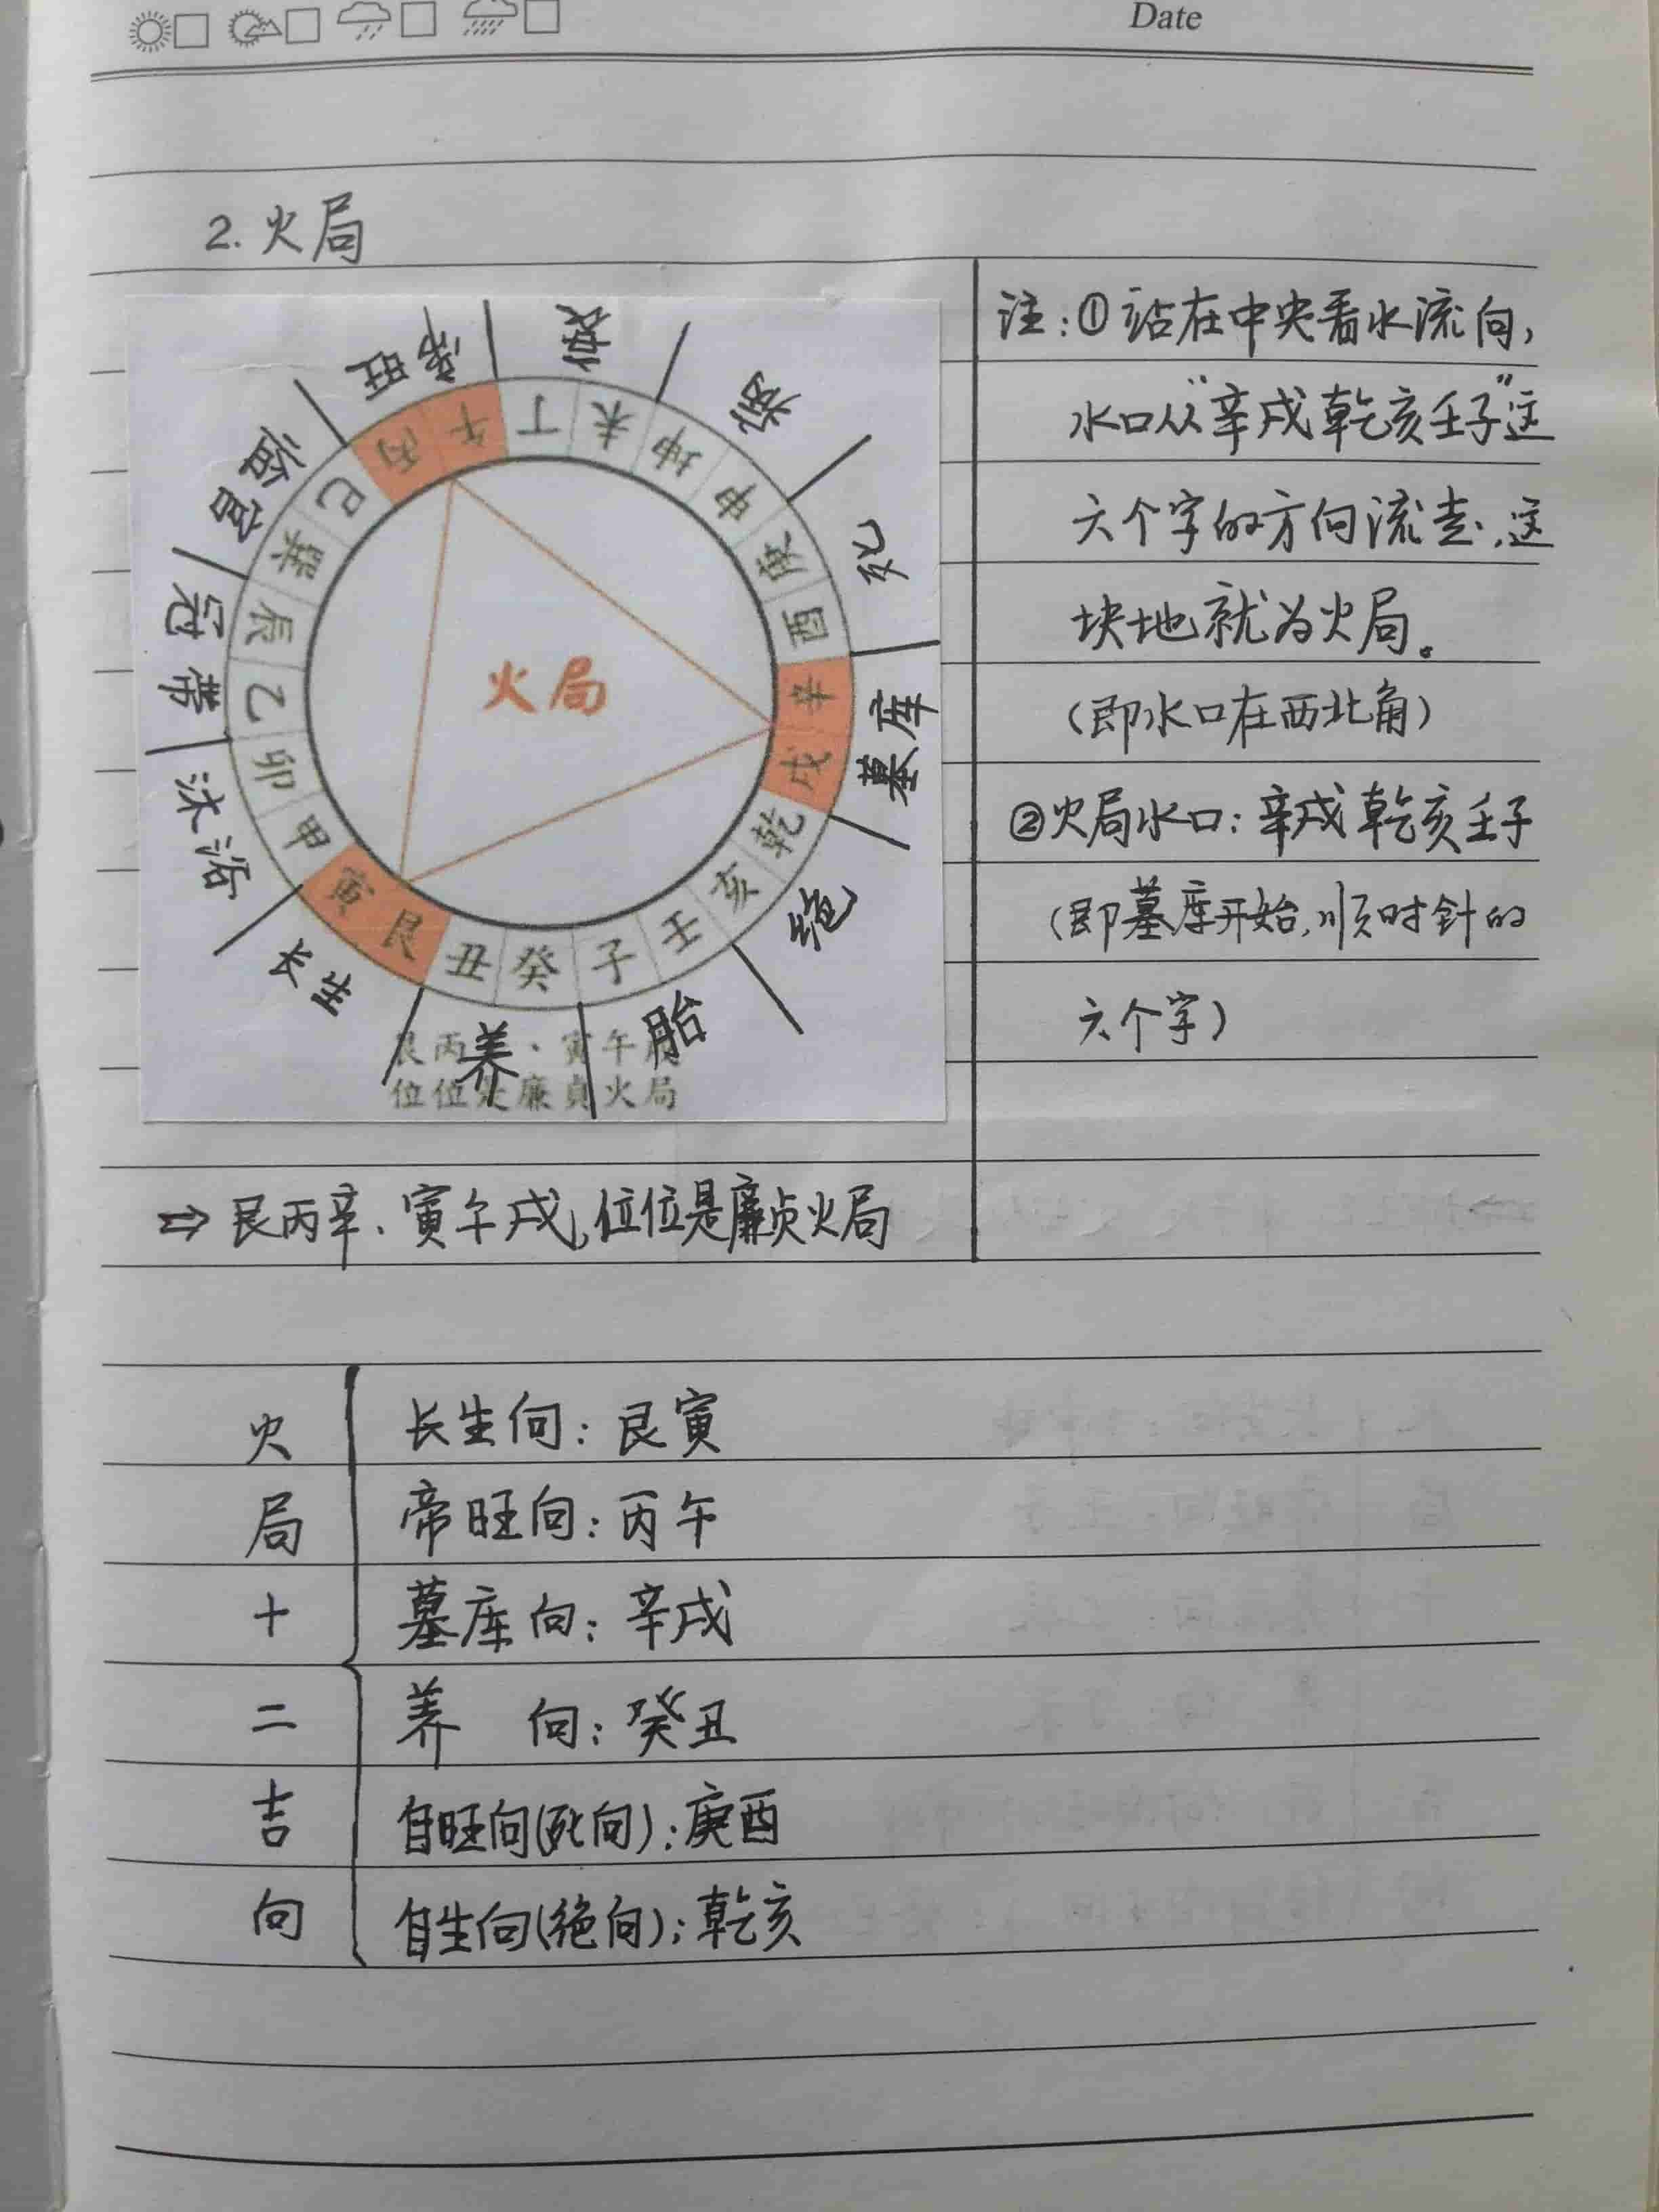 Date
2. 火局
帝旺
衰
病
死
墓库
绝
胎
养
长生
沐浴
冠带
临官
丙午丁未坤申庚酉辛戌乾亥壬子癸丑艮寅甲卯乙辰巽巳
火局
艮丙 · 寅午
位位 廉貞火局
注:①站在中央看水流向,
水口从“辛戌乾亥壬子”这
六个字的方向流走,这
块地就为火局。
(即水口在西北角)
②火局水口:辛戌乾亥壬子
(即墓库开始,顺时针的
六个字)
⇨ 艮丙辛、寅午戌,位位是廉贞火局
火局十二吉向
长生向:艮寅
帝旺向:丙午
墓库向:辛戌
养 向:癸丑
自旺向(死向):庚酉
自生向(绝向):乾亥